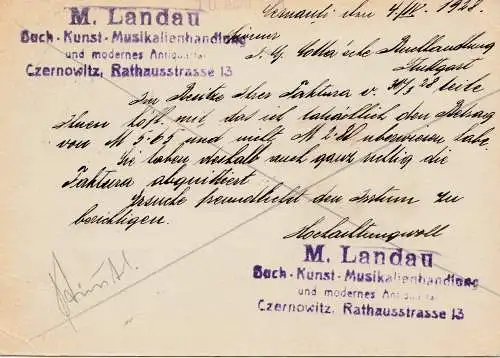 M. Landau
Buch-Kunst-Musikalienhandlung
und modernes Antiquariat
Czernowitz, Rathausstrasse 13
Cernauti den 4/IV. 1928.
J. G. Cotta'sche Buchhandlung
Stuttgart
Im Besitze Ihrer Faktura v. 30/3 28 teile
Ihnen höfl. mit, das ich tatsächlich den Betrag
von M 5.65 und nicht M 2.20 überwiesen habe.
Sie haben deshalb auch ganz richtig die
Faktura abquittiert.
Ersuche freundlichst den Irrtum zu
berichtigen.
Hochachtungsvoll
M. Landau
Buch-Kunst-Musikalienhandlung
und modernes Antiquariat
Czernowitz, Rathausstrasse 13